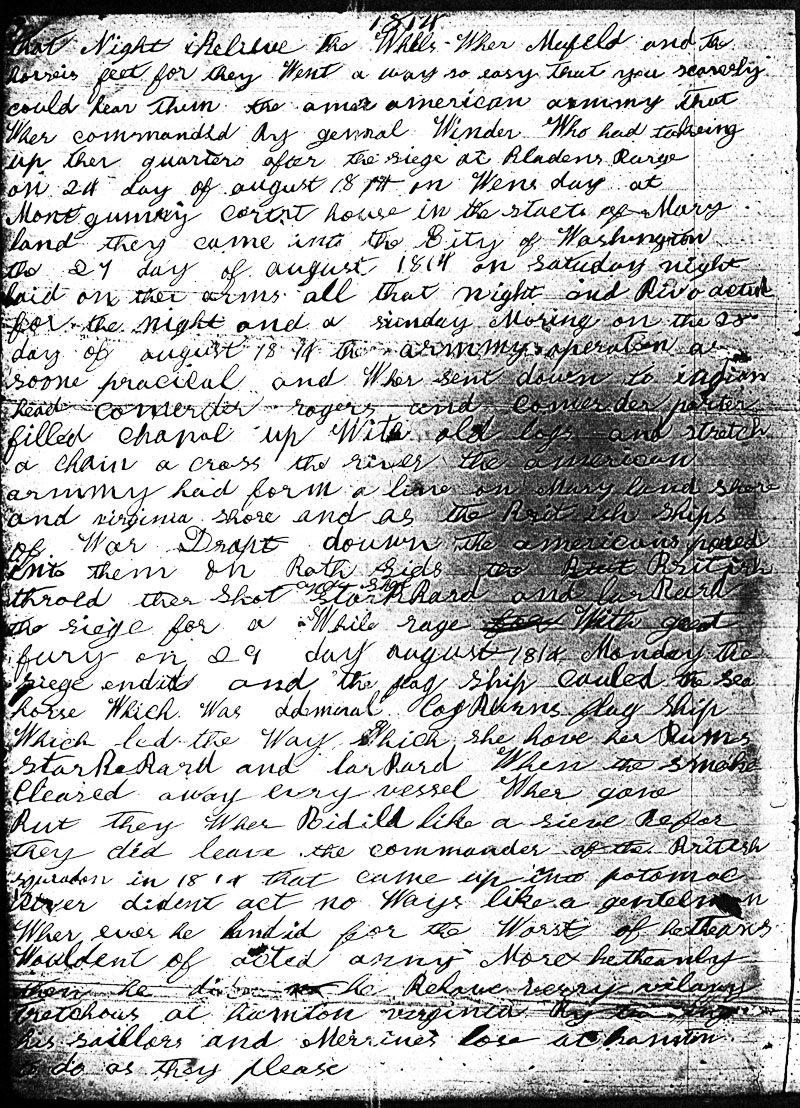 1814
that Night i Releive the Whels Wher Mufeld and the
horseis feet for they Went a way so easy that you scarerly
could hear them the amer american armmy that
Wher commandid By genral Winder Who had takeing
up ther quarters after the siege at Bladens Burge
on 24 day of august 1814 on Wens day at
Montgumrey cortit house in the staets of Mary
land they came into the City of Washington
the 27 day of august 1814 on satuday night
laid on ther arms all that night and
for the night and a sunday Moring on the 28
day of august 1814 the armmy operaton as
soone pracital and Wher sent down to indian
head comerder rogers and comerder porter
filled chanal up With old logs and stretch
a chain a cross the river the american
armmy had form a line on Mary land shore
and virginia shore and as the British ships
of War Dropt douwn the americans pored
into them on Both sids the But British
throld ther shot and shell starkBard and larBard
the siege for a While rage for With great
fury on 29 day august 1814 Monday the
siege endid and the flag ship couled the sea
horse Which Was admiral CogBurns flag ship
Which led the Way Which she hove her Bums
starBeBard and larBard When the smoke
Cleared away every vessel Wher gone
But they Wher Ridild like a sieve Befor
they did leave the commander of the British
squradon in 1814 that came up into potomac
River dident act no Ways like a gentelman
Wher ever he landid for the Worst of hetheans
Wouldent of acted anny More hetheanly
then he did he Behave verry vilany
tretchous at hamton virginia By
his saillors and Merrines lose at hamton
to do as they please